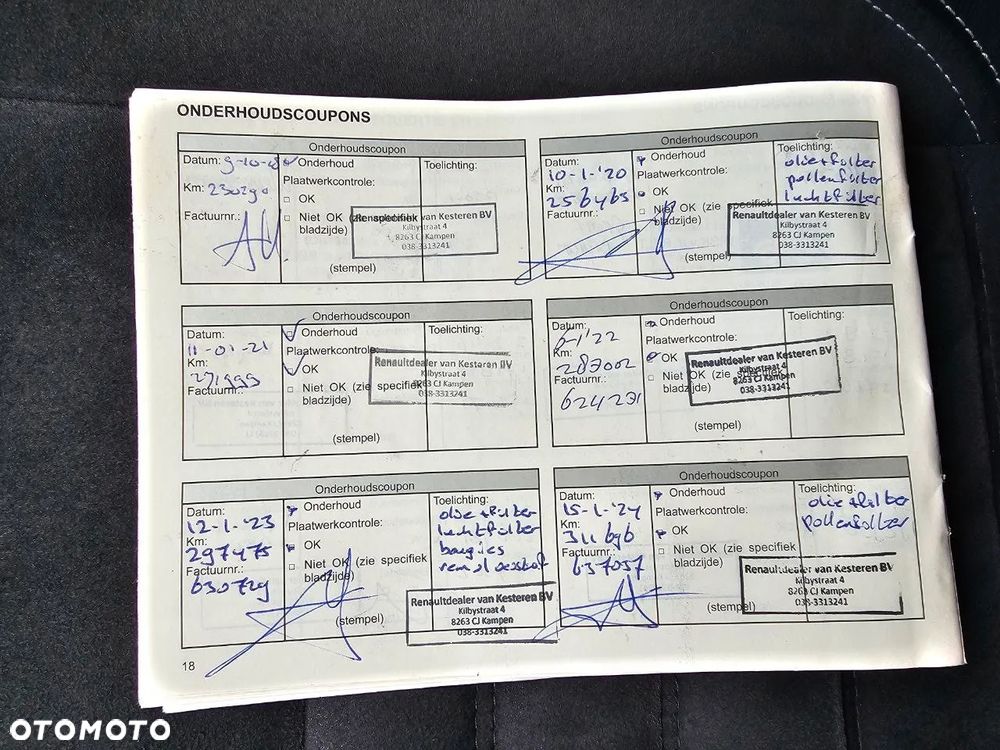 ONDERHOUDSCOUPONS
Onderhoudscoupon
Datum: 9-10-18
Km: 230290
Factuurnr.:
Onderhoud
Plaatwerkcontrole:
OK
Niet OK (zie specifiek
bladzijde)
(stempel)
Toelichting:
Renaultdealer van Kesteren BV
Kilbystraat 4
8263 CJ Kampen
038-3313241
Onderhoudscoupon
Datum:
10-1-'20
Km:
256465
Factuurnr.:
Onderhoud
Plaatwerkcontrole:
OK
Niet OK (zie specifiek
bladzijde)
(stempel)
Toelichting:
olie+filter
pollenfilter
luchtfilter
Renaultdealer van Kesteren BV
Kilbystraat 4
8263 CJ Kampen
038-3313241
Onderhoudscoupon
Datum:
11-01-21
Km:
271999
Factuurnr.:
Onderhoud
Plaatwerkcontrole:
OK
Niet OK (zie specifiek
bladzijde)
(stempel)
Toelichting:
Renaultdealer van Kesteren BV
Kilbystraat 4
8263 CJ Kampen
038-3313241
Onderhoudscoupon
Datum:
6-1-'22
Km:
287002
Factuurnr.:
624271
Onderhoud
Plaatwerkcontrole:
OK
Niet OK (zie specifiek
bladzijde)
(stempel)
Toelichting:
Renaultdealer van Kesteren BV
Kilbystraat 4
8263 CJ Kampen
038-3313241
Onderhoudscoupon
Datum:
12-1-'23
Km:
297475
Factuurnr.:
630729
Onderhoud
Plaatwerkcontrole:
OK
Niet OK (zie specifiek
bladzijde)
(stempel)
Toelichting:
olie+filter
luchtfilter
bougies
remvloeistof
Renaultdealer van Kesteren BV
Kilbystraat 4
8263 CJ Kampen
038-3313241
Onderhoudscoupon
Datum:
15-1-'24
Km:
311696
Factuurnr.:
637057
Onderhoud
Plaatwerkcontrole:
OK
Niet OK (zie specifiek
bladzijde)
(stempel)
Toelichting:
olie+filter
pollenfilter
Renaultdealer van Kesteren BV
Kilbystraat 4
8263 CJ Kampen
038-3313241
18
OTOMOTO